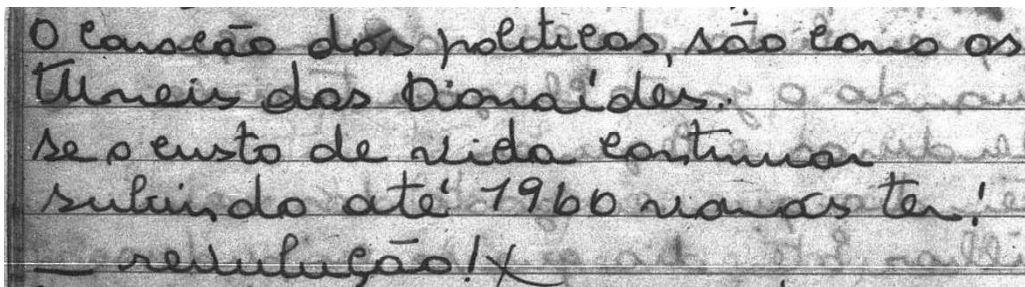 O coração dos politicos, são como os
tuneis das Dionaídes.
se o custo de vida continuar
subindo até 1960 vamos ter!
— revulução!